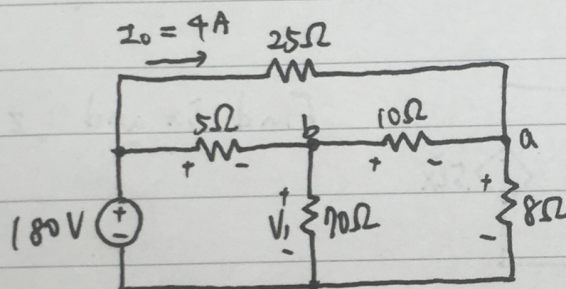 I₀ = 4A
25Ω
5Ω
b
10Ω
a
+ -
+ -
180V
+
-
+
V₁
-
70Ω
+
8Ω
-